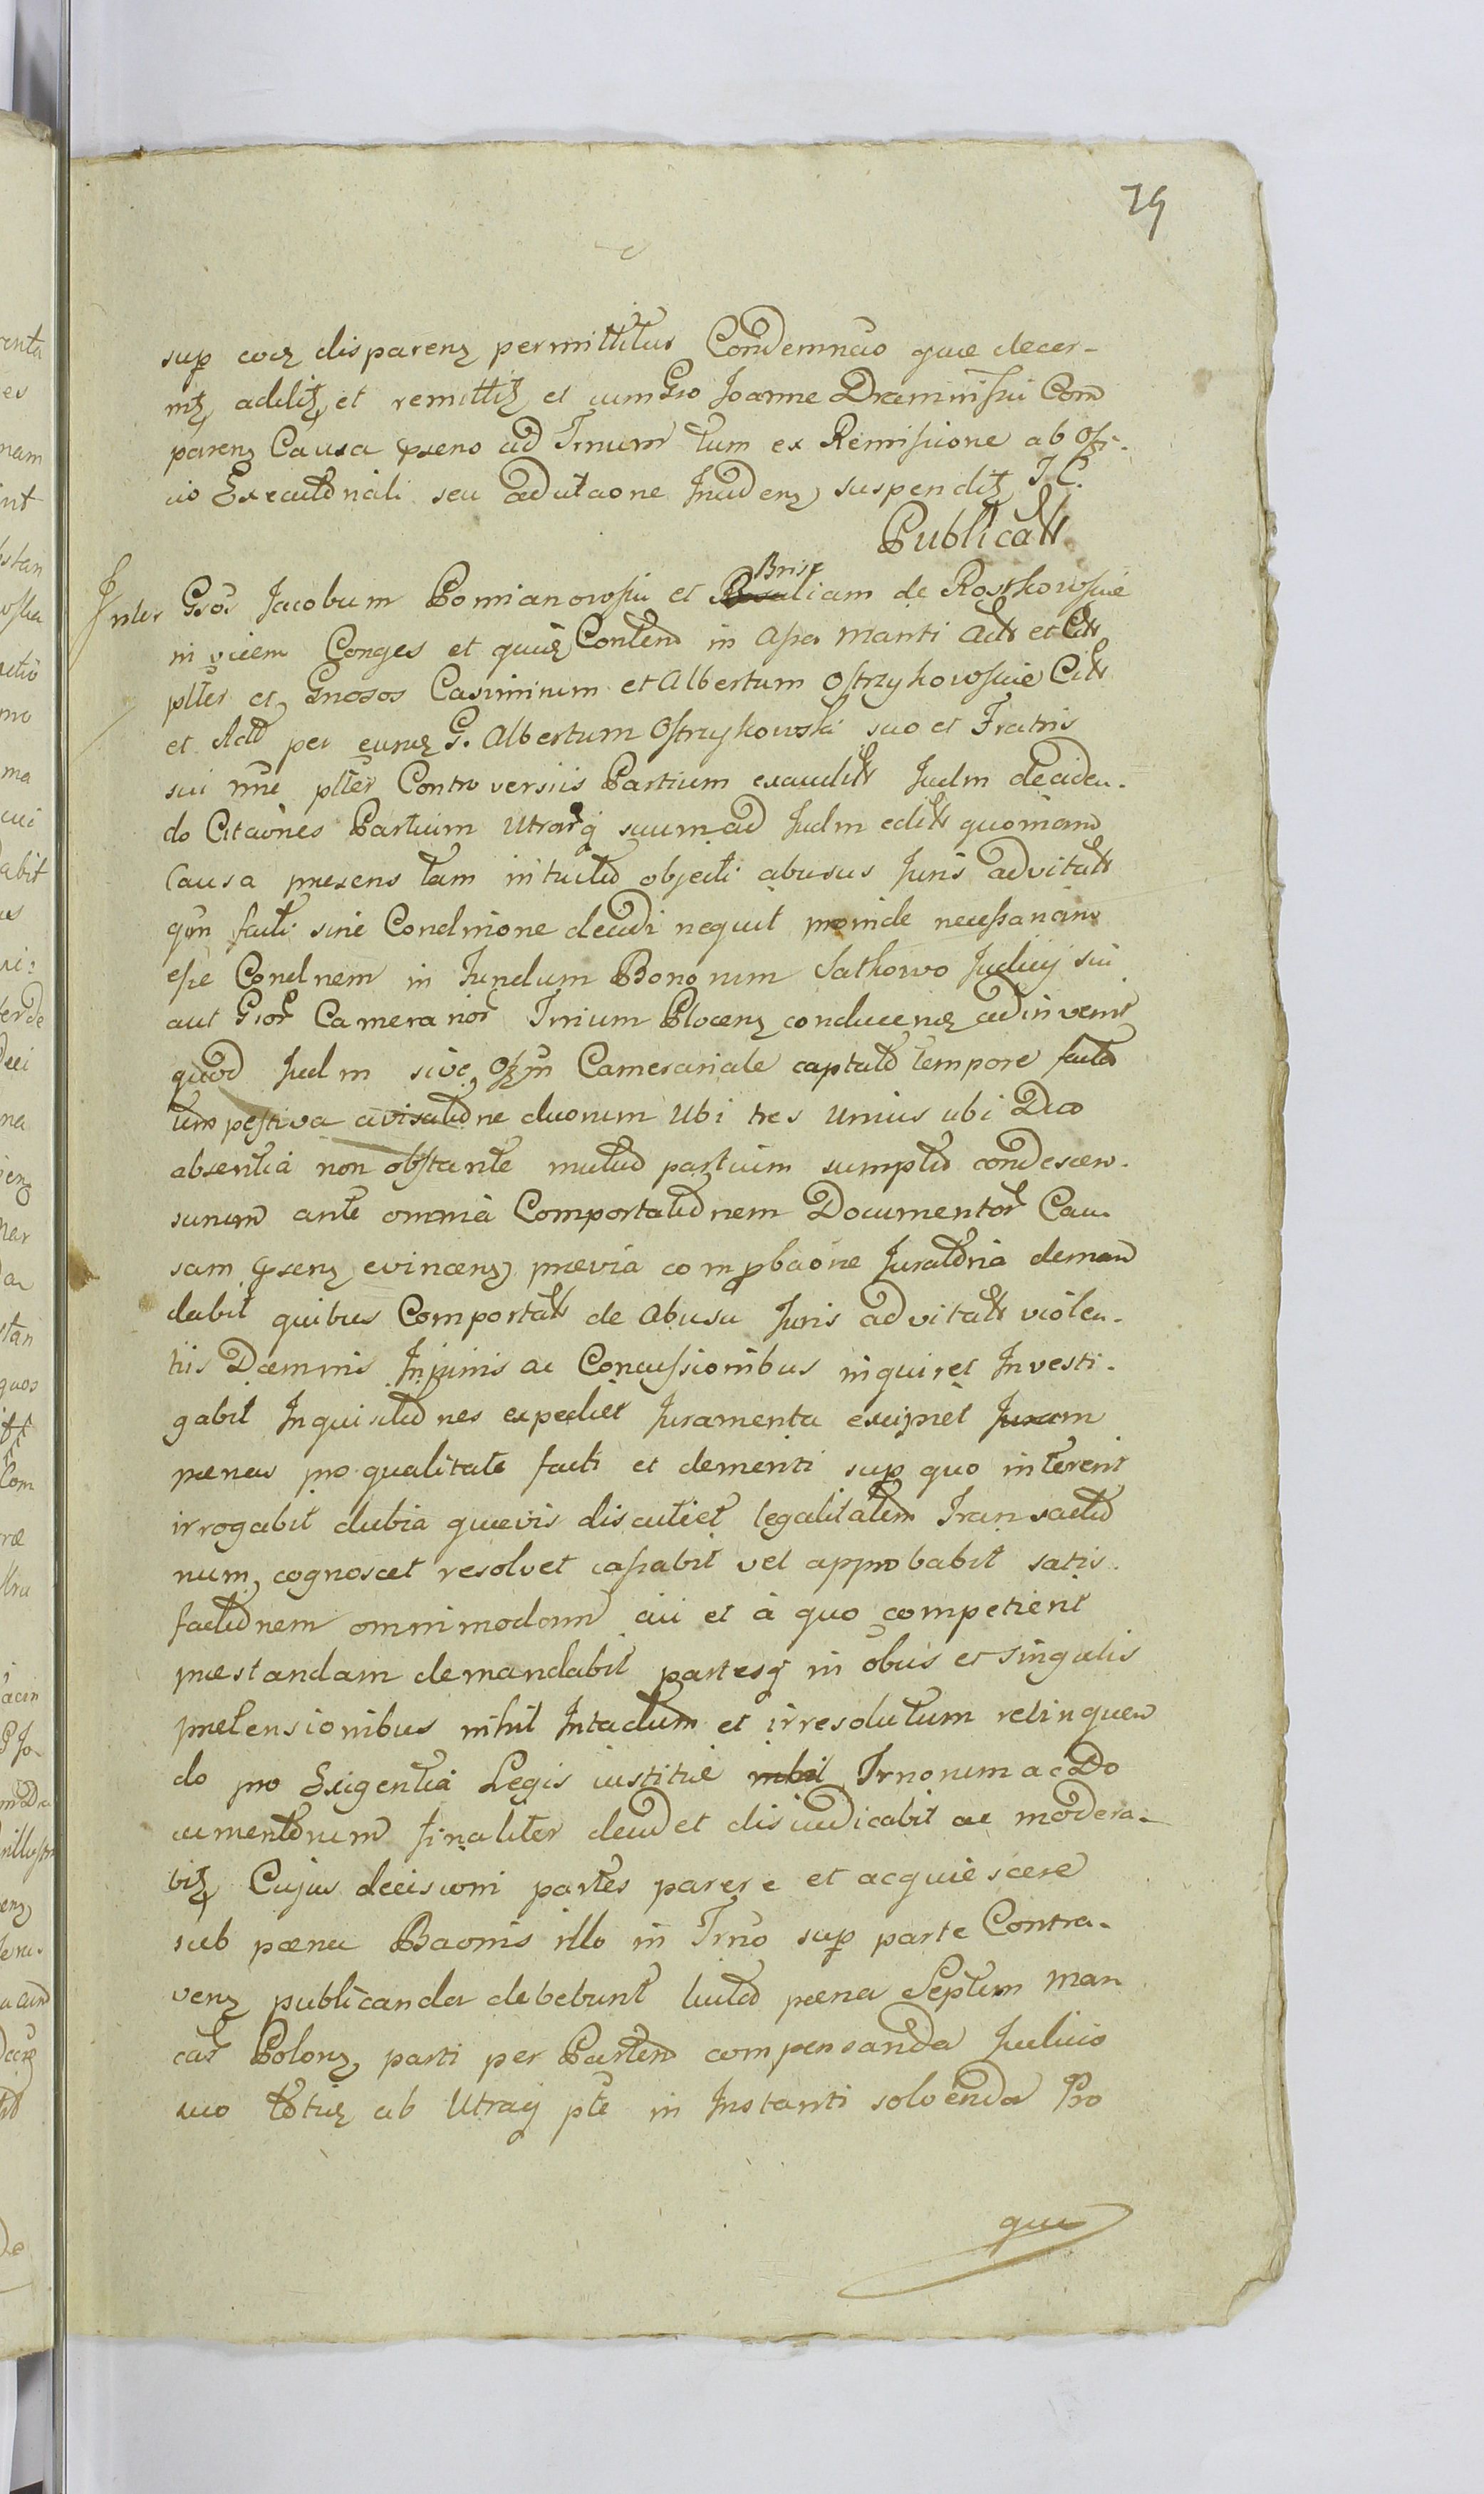 79
sup eoq disparenz permittitur Condemnao quae decer-
nitz additz et remittitz et cum Gro Joanne Draminski Com
parenz Causa pxens ad Trnum tum ex Remissione ab Offi-
cio Executoriali seu adcitaone Incidenz suspenditz J. C.
Publicatt
Inter Gros Jacobum Pomianowski et Brisaliam de Rostkowskie
invicem Conges et quidz Contend in Assa Manti Actt et Citt
plter et Gnosos Casimirum et Albertum Ostrzykowskie Citt
et Actt per eundz G. Albertum Ostrzykowski suo et Fratris
sui nne plter Controversiis Partium exauditt Judm deciden-
do Citaones Partium Utrarq suum ad Judm editt quoniam
Causa presens tam intuitu objecti abusus Juris advitatt
qm facti sine Condnsione decidi nequit proinde necessariam
esse Condnem in Fundum Bonorum Satkowo Judicij sui
aut Gror Camerarior Trrium Plocenz conducendz adinvenit
quod Judm sive Offm Camerariale captato tempore facta
tempestiva avisatione duorum Ubi tres unius ubi Duo
absentia non obstante mutuo partium sumptu condescen-
surum ante omnia Comportationem Documentor Cau-
sam pxenz evincenz praevia comprobaone Juratoria deman
dabit quibus Comportatt de Abusu Juris advitatt violen-
tiis Damnis Injuriis ac Concussionibus inquiret Investi-
gabit Inquisitiones expediet Juramenta excipiet
paenas pro qualitate facti et demeriti sup quo intererit
irrogabit dubia quaevis discutiet legalitatem Transactio
num cognoscet resolvet cassabit vel approbabit satis-
factionem omnimodam cui et à quo competierit
praestandam demandabit partesq in obus et singulis
praetensionibus nihil Intactum et irresolutum relinquen
do pro Exigentia Legis iustitiae Trnorum ac Do
cumentorum finaliter decidet disiudicabit ac modera-
bitz Cujus decisioni partes parere et acquiescere
sub paena Baonis illo in Trno sup parte Contra-
venz publicanda debebunt luito paena Septem Mar
car Polonz parti per Partem compensanda Judicio
vero totidz ab Utraq pte in Instanti solvenda Pro
quu